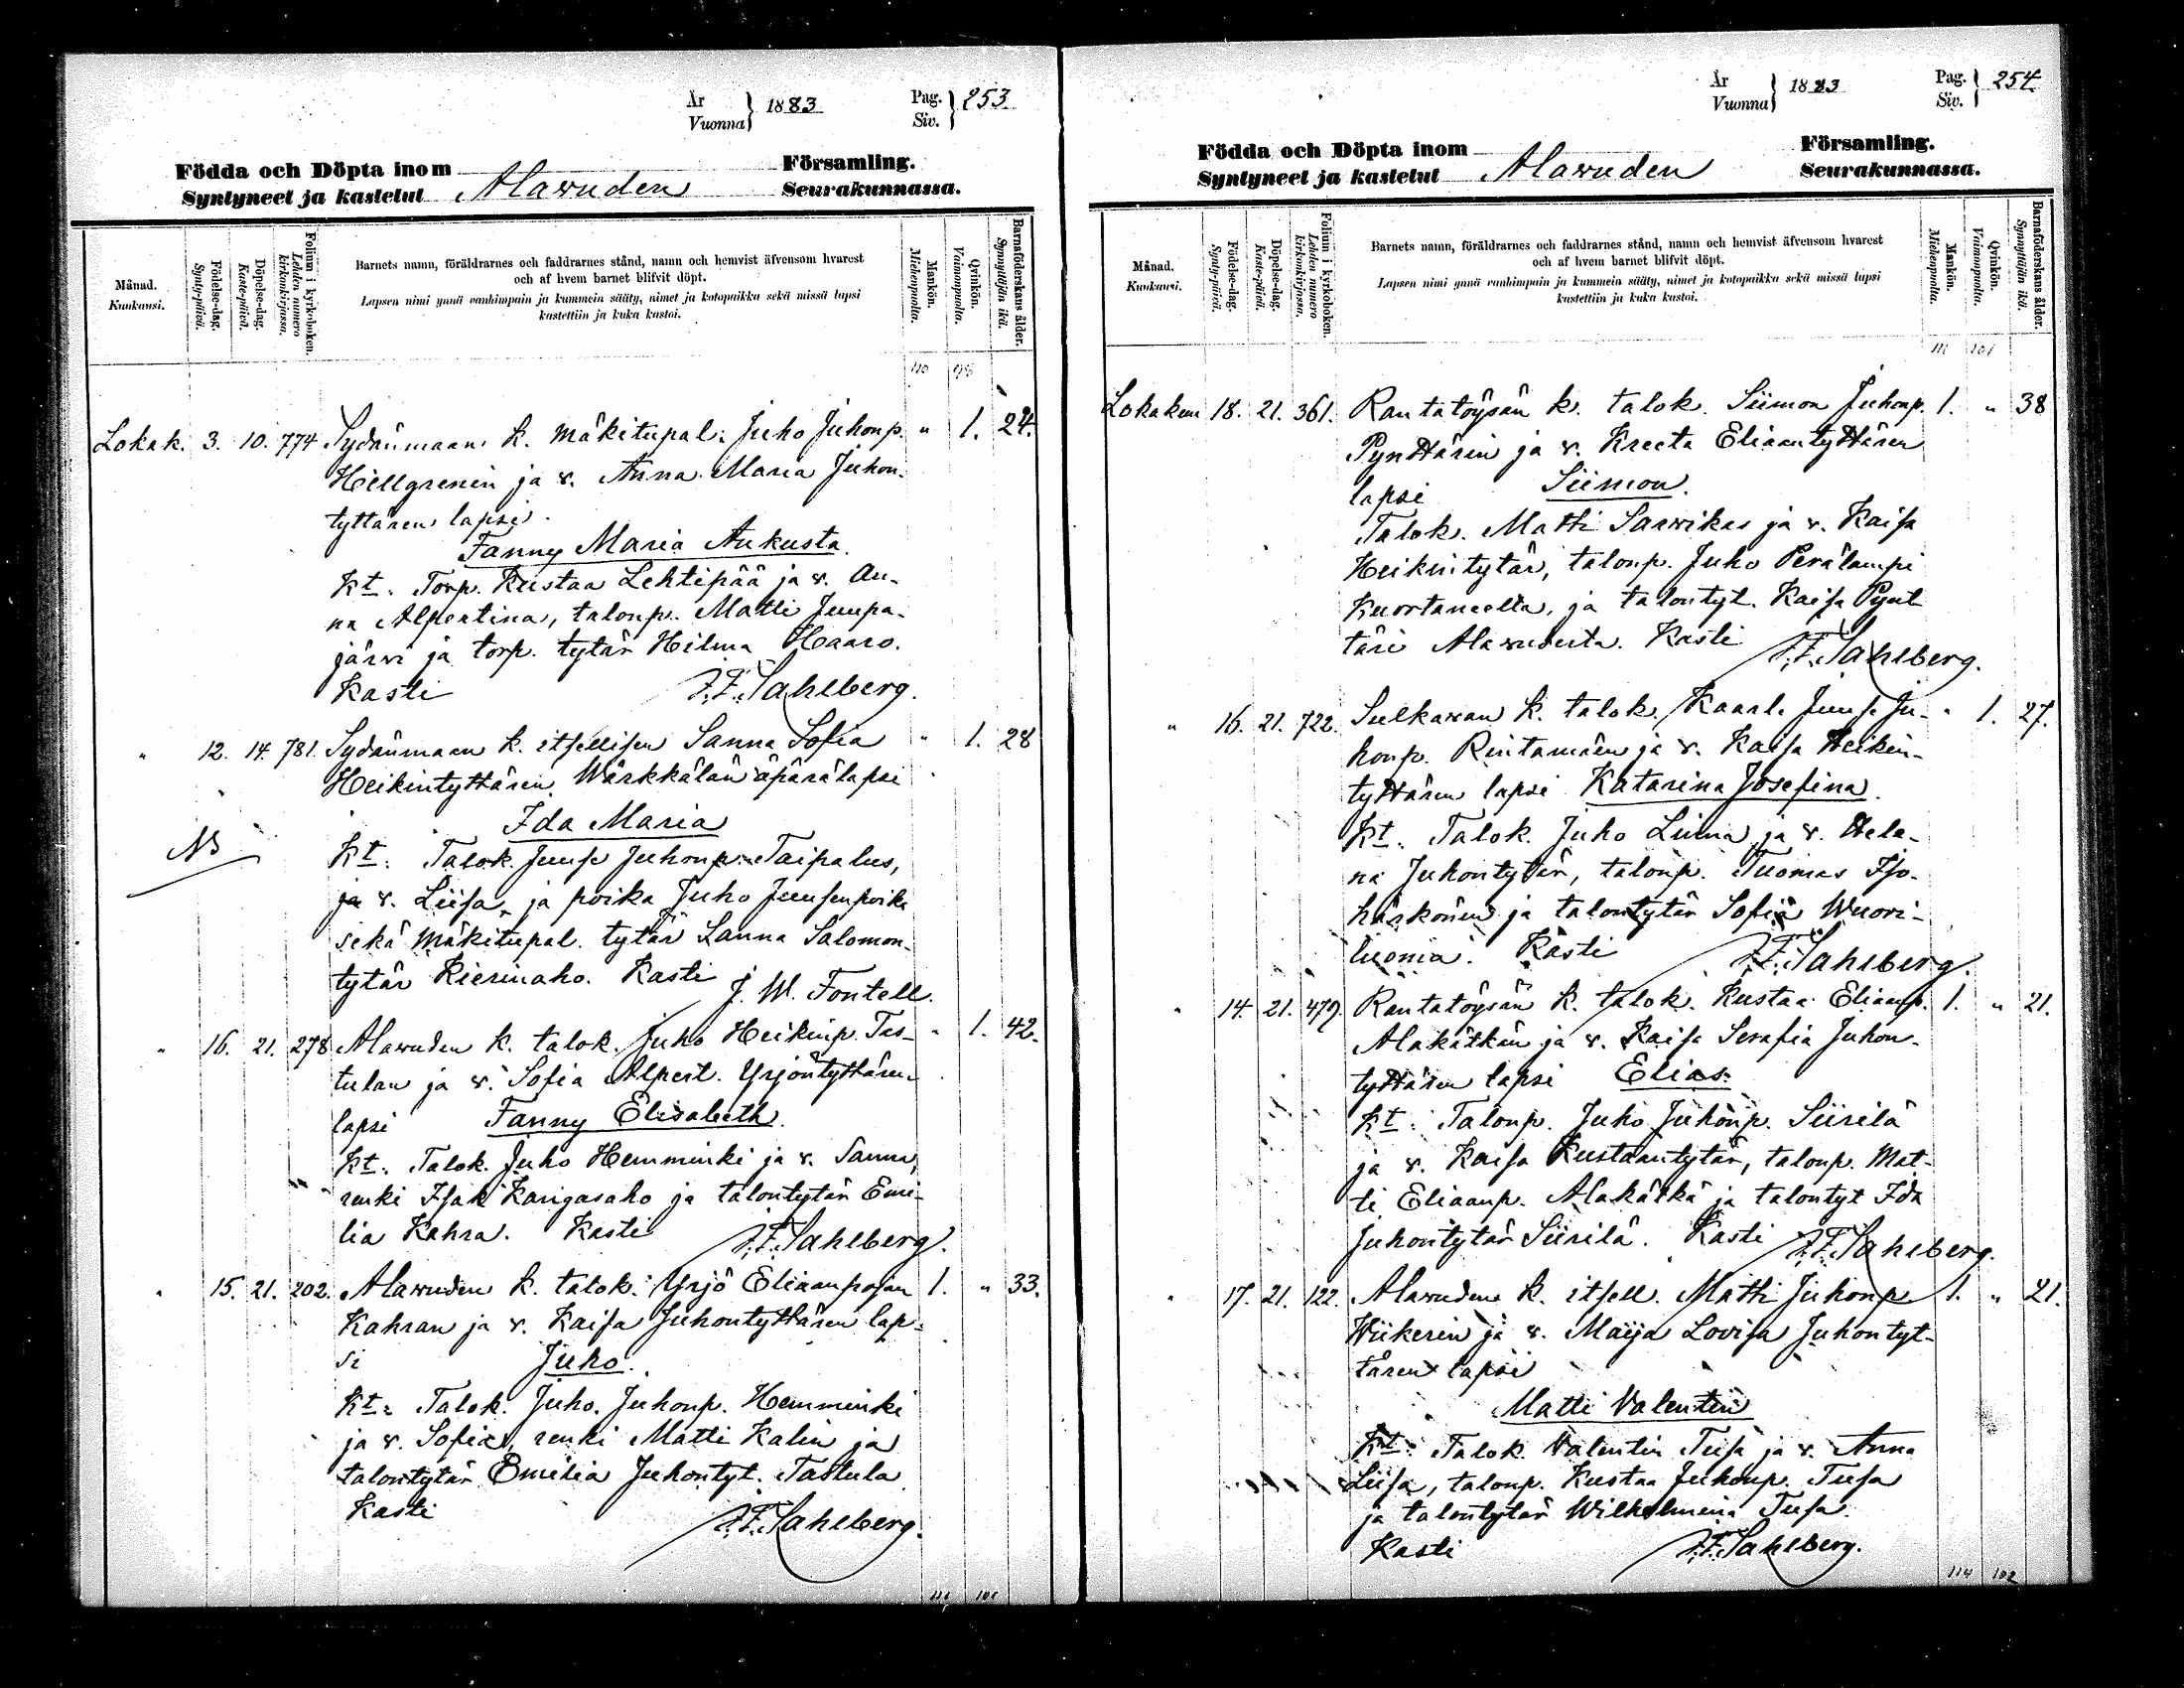 År
Vuonna } 1883 Pag.
Siv. } 253.
Födda och Döpta inom Församling.
Syntyneet ja kastetut Alawuden Seurakunnassa.
Månad.
Kuukausi.
Födelse-dag.
Synty-päivä.
Döpelse-dag.
Kaste-päivä.
Folium i kyrkoboken.
Lehden numero
kirkonkirjassa.
Barnets namn, föräldrarnes och faddrarnes stånd, namn och hemvist äfvensom hvarest
och af hvem barnet blifvit döpt.
Lapsen nimi ynnä vanhimpain ja kummein sääty, nimet ja kotopaikka sekä missä lapsi
kastettiin ja kuka kastoi.
Mankön.
Miehenpuolta.
Qvinkön.
Vaimonpuolta.
Barnaföderskans ålder.
Synnyttäjän ikä.
110 98
Lokak. 3. 10. 774 Sydänmaan k. Mäkitupal. Juho Juhonp. " 1. 24.
Hillgrenin ja v. Anna Maria Juhon-
tyttären lapsi
Fanny Maria Aukusta.
Kt. Torp. Kustaa Lehtipää ja v. An-
na Alpertina, talonp. Matti Juupa-
järvi ja torp. tytär Hilma Haaro.
Kasti J.F. Sahlberg.
" 12. 14. 781. Sydänmaan k. itsellisen Sanna Sofia " 1. 28
Heikintyttären Wärkkälän äpärälapsi
Ida Maria
NB Kt: Talok. Juuse Juhonp. Taipalus,
ja v. Liisa, ja poika Juho Juusenpoika
sekä Mäkitupal. tytär Sanna Salomon-
tytär Kierinaho. Kasti
J. W. Fontell.
" 16. 21. 278 Alawuden k. talok. Juho Heikinp. Tas- " 1. 42.
tulan ja v. Sofia Alpert. Yrjöntyttären
lapsi Fanny Elisabeth.
Kt. Talok. Juho Hemminki ja v. Sanna,
renki Isak Kangasaho ja talontytär Emi-
lia Kahra. Kasti J.F. Sahlberg.
" 15. 21. 202. Alawuden k. talok. Yrjö Eliaanpojan 1. " 33.
Kahran ja v. Kaisa Juhontyttären lap-
si Juho.
Kt: Talok. Juho Juhonp. Hemminki
ja v. Sofia, renki Matti Kalin ja
talontytär Emilia Juhontyt. Tastula
Kasti J.F. Sahlberg.
År
Vuonna } 1883 Pag.
Siv. } 254.
Födda och Döpta inom Församling.
Syntyneet ja kastetut Alawuden Seurakunnassa.
Månad.
Kuukausi.
Födelse-dag.
Synty-päivä.
Döpelse-dag.
Kaste-päivä.
Folium i kyrkoboken.
Lehden numero
kirkonkirjassa.
Barnets namn, föräldrarnes och faddrarnes stånd, namn och hemvist äfvensom hvarest
och af hvem barnet blifvit döpt.
Lapsen nimi ynnä vanhimpain ja kummein sääty, nimet ja kotopaikka sekä missä lapsi
kastettiin ja kuka kastoi.
Mankön.
Miehenpuolta.
Qvinkön.
Vaimonpuolta.
Barnaföderskans ålder.
Synnyttäjän ikä.
111 101
Lokakuu 18. 21. 361. Rantatöysän k. talok. Siimon Juhonp. 1. " 38
Pynttärin ja v. Kreeta Eliaantyttären
lapsi Siimon.
Talok. Matti Sarvikas ja v. Kaisa
Heikintytär, talonp. Juho Perälampi
Kuortaneelta, ja talontyt. Kaisa Pynt
täri Alawudesta. Kasti J.F. Sahlberg.
" 16. 21. 722. Sulkawan k. talok. Kaarle Juuse Ju- " 1. 27.
honp. Rintamäen ja v. Kaisa Heikin-
tyttären lapsi Katarina Josefina.
Kt. Talok. Juho Luma ja v. Hele-
na Juhontytär, talonp. Tuomas Iso-
härkönen ja talontytär Sofia Wuori-
luoma. Kasti J.F. Sahlberg.
" 14. 21. 479. Rantatöysän k. talok. Kustaa Eliaanp. 1. " 21.
Alakätkän ja v. Kaisa Serafia Juhon-
tyttären lapsi Elias.
Kt: Talonp. Juho Juhonp. Siirilä
ja v. Kaisa Kustaantytär, talonp. Mat-
ti Eliaanp. Alakätkä ja talontyt Ida
Juhontytär Siirilä. Kasti J.F. Sahlberg.
" 17. 21. 122. Alawuden k. itsell. Matti Juhonp 1. " 21.
Wiikerin ja v. Maija Lovisa Juhontyt-
tären lapsi
Matti Valentin
Kt: Talok. Valentin Tusa ja v. Anna
Liisa, talonp. Kustaa Juhonp. Tusa
ja talontytär Wilhelmina Tusa.
Kasti J.F. Sahlberg.
114 102